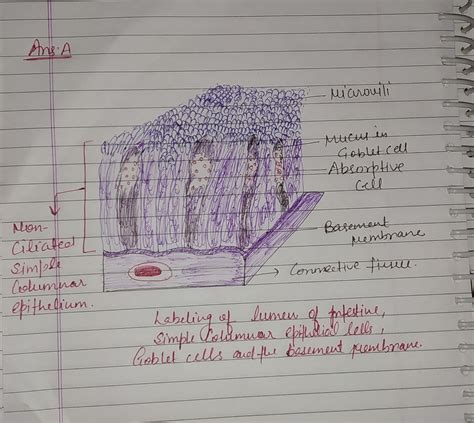 Ans. A
Microvili
Mucus in
Goblet cell
Absorptive
Cell
Basement
membrane
Connective tissue.
Non-
Ciliated
Simple
Coloumnar
epithelium.
Labeling of lumen of intestine,
Simple Coloumnar epithelial cells,
Goblet cells and the Basement membrane.